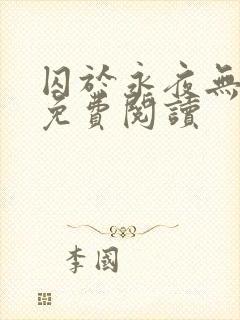 囚於永夜無
免費閱讀
李國